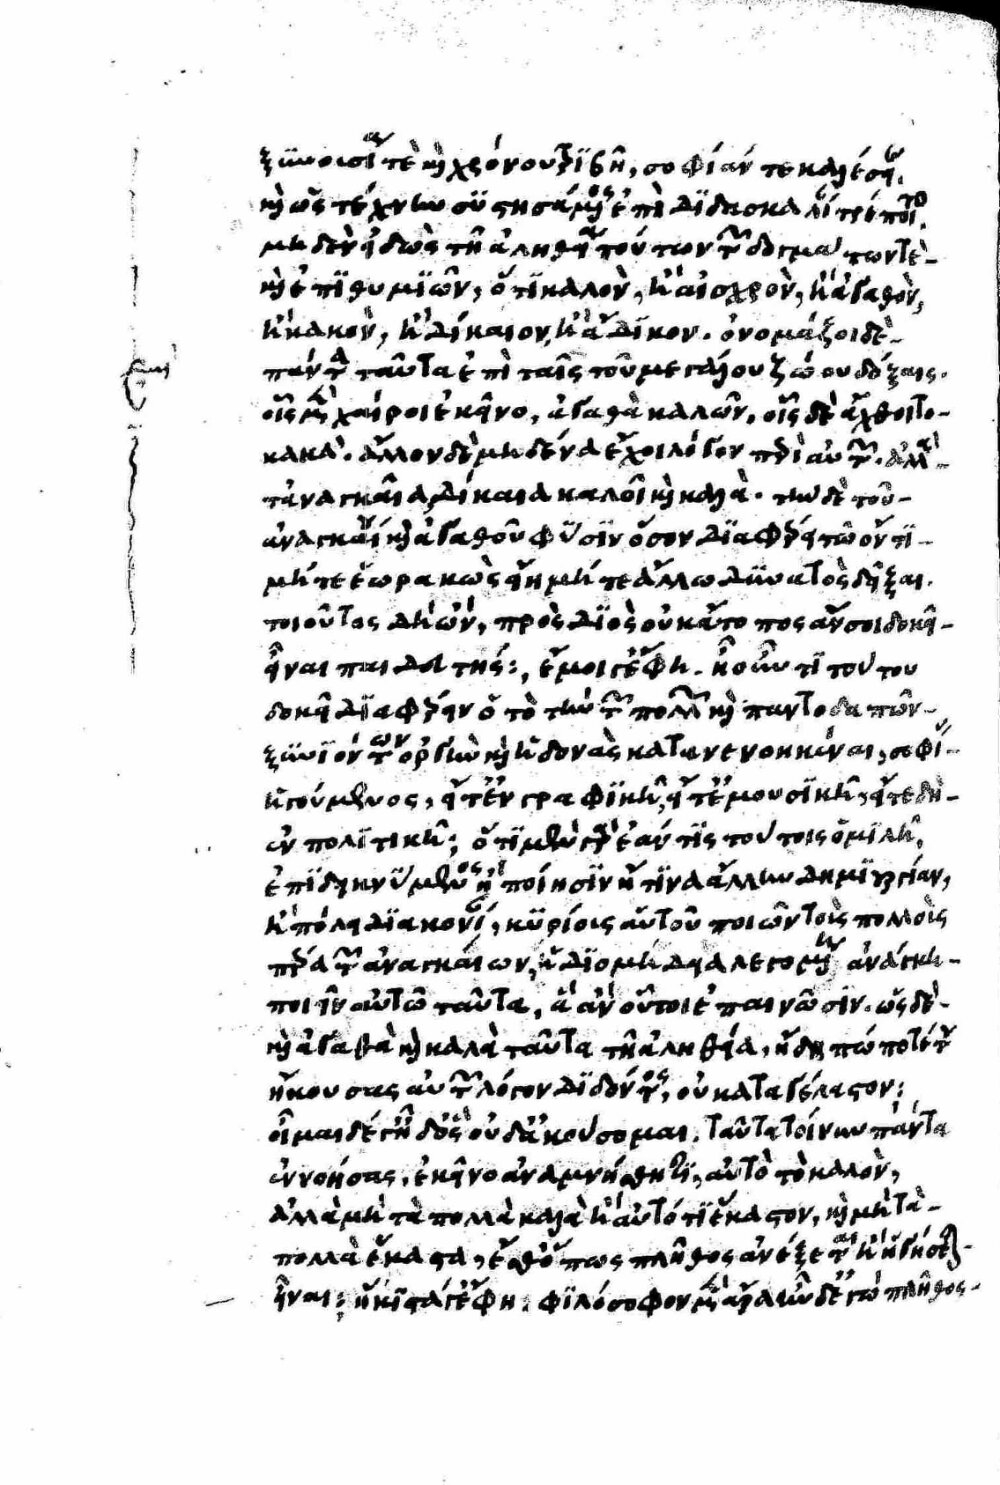 ξυνουσίᾳ τὲ καὶ χρόνου τριβῆ, σοφίαν τε καλέσειεν,
καὶ ὡς τέχνην συστησάμενος ἐπὶ διδασκαλίαν τρέποιτο,
μηδὲν εἰδὼς τῆ ἀληθεία τούτων τῶν δογμάτων τὲ
καὶ ἐπιθυμιῶν, ὅτι καλὸν, ἢ αἰσχρὸν, ἢ ἀγαθὸν,
ἢ κακὸν, ἢ δίκαιον, ἢ ἄδικον. ὀνομάζοι δὲ
πάντα ταῦτα ἐπὶ ταῖς τοῦ μεγάλου ζώου δόξαις.
οἷς μὲν χαίροι ἐκεῖνο, ἀγαθὰ καλῶν, οἷς δὲ ἄχθοιτο
κακὰ. ἄλλον δὲ μηδένα ἔχοι λόγον περὶ αὐτῶν. ἀλλὰ
τἀναγκαῖα δίκαια καλοῖ καὶ καλὰ. τὴν δὲ τοῦ
ἀναγκαίου καὶ ἀγαθοῦ φύσιν ὅσον διαφέρει τῶ ὄντι
μήτε ἑωρακὼς εἴη μήτε ἄλλω δυνατὸς δεῖξαι.
τοιοῦτος δὴ ὢν, πρὸς διὸς οὐκ ἄτοπος ἄν σοι δοκεῖ
εἶναι παιδευτής; ἔμοιγ' ἔφη. ἢ οὖν τὶ τούτου
δοκεῖ διαφέρειν ὁ τὸ τὴν τῶν πολλῶν καὶ παντοδαπῶν
ξυνιόντων ὀργὴν καὶ ἡδονὰς κατανενοηκέναι, σοφίαν
ἡγούμενος, εἴτ' ἐν γραφικῆ, εἴτ' ἐν μουσικῆ, εἴτε δὴ
ἐν πολιτικῆ; ὅτι μὲν γὰρ ἐάν τις τούτοις ὁμιλῆ,
ἐπιδεικνύμενος ἢ ποίησιν ἤ τινα ἄλλην δημιουργίαν,
ἢ πόλει διακονίαν, κυρίους αὑτοῦ ποιῶν τοὺς πολλοὺς
πέρα τῶν ἀναγκαίων, ἡ διομήδεια λεγομένη ἀνάγκη
ποιεῖν αὐτῶ ταῦτα, ἃ ἂν οὗτοι ἐπαινῶσιν. ὡς δὲ
καὶ ἀγαθὰ καὶ καλὰ ταῦτα τῆ ἀληθεία, ἤδη πώποτέ του
ἤκουσας αὐτῶν λόγον διδόντος, οὐ καταγέλαστον;
οἶμαι δέ γε ἦ δ' ὃς οὐδ' ἀκούσομαι. ταῦτα τοίνυν πάντα
ἐννοήσας, ἐκεῖνο ἀναμνήσθητι, αὐτὸ τὸ καλὸν,
ἀλλὰ μὴ τὰ πολλὰ καλὰ ἢ αὐτό τι ἕκαστον, καὶ μὴ τὰ
πολλὰ ἕκαστα, ἔσθ' ὅπως πλῆθος ἀνέξεται ἢ ἡγήσεται
εἶναι; ἥκιστά γ' ἔφη. φιλόσοφον μὲν ἄρα ἦν δ' ἐγὼ πλῆθος